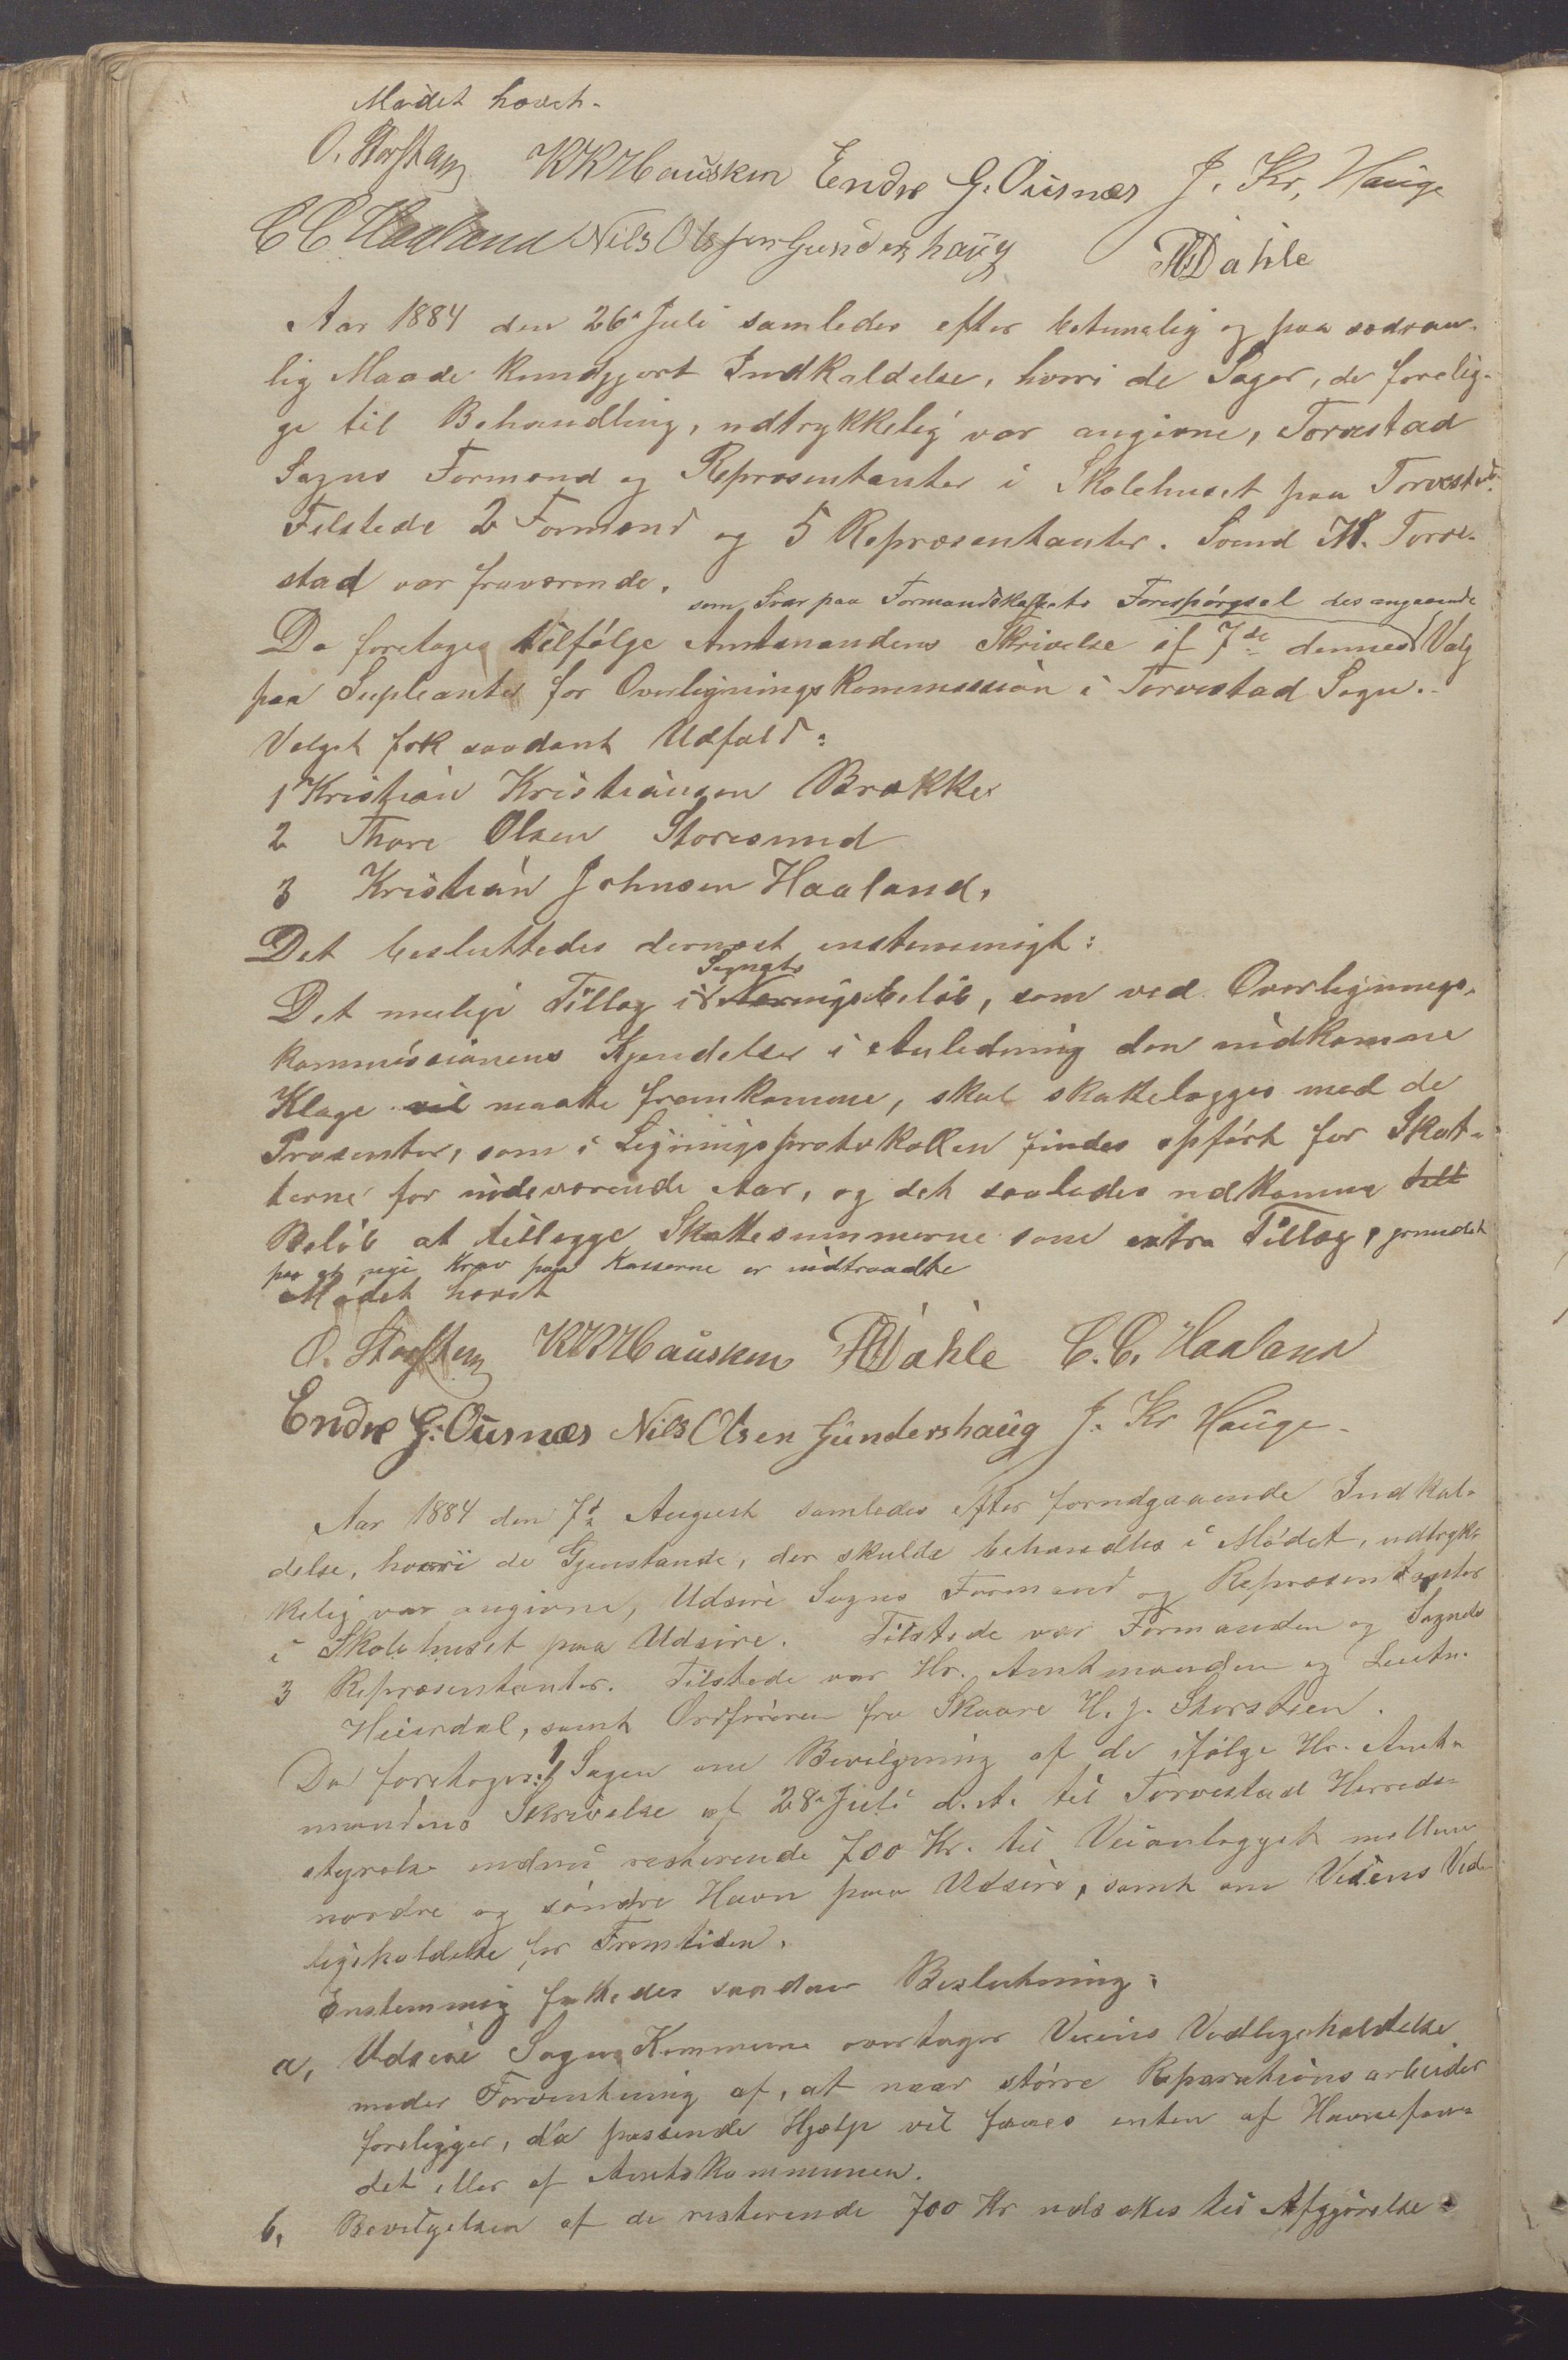 Mödet hævet.
O. Storsten KKHausken Endre G. Ousnæs J. Kr. Hauge
C C Haaland Nils Olsen Gundershaug Dahle
Aar 1884 den 26 Juli samledes efter betimelig og paa sædvan-
lig Maade kundgjort Indkaldelse, hvori de Sager, der forelig-
ge til Behandling, udtrykkelig var angivne, Torvestad
Sogns Formænd og Repræsentanter i Skolehuset paa Torvestad.
Tilstede 2 Formænd og 5 Repræsentanter. Svend M. Torve-
stad var fraværende.
som Svar paa Formandskabets Forespörgsel desangaaende
Da foretages tilfölge Amtmandens Skrivelse af 7de dennes Valg
paa Supleanter for Overligningskommission i Torvestad Sogn.
Valget fik saadant Udfald:
1 Kristian Kristiansen Brække
2 Thore Olsen Storesund
3 Kristian Johnsen Haaland.
Det besluttedes dernæst enstemmigt:
Sognets
Det mulige Tillæg i Næringsbelöb, som ved Overlignings-
kommissionens Kjendelser i Anledning den indkomne
Klage vil maatte fremkomme, skal skattelægges med de
Prosenter, som i Ligningsprotokollen findes opfört for Skat-
terne for indeværende Aar, og det saaledes udkomne till
Belöb at tillægge Skattesummerne som extra Tillæg, grundet
paa at nye Krav paa Kasserne er indtraadte
Mödet hævet
O. Storsten KKHausken Dahle C. C. Haaland
Endre G. Ousnæs Nils Olsen Gundershaug J. Kr Hauge
Aar 1884 den 7d August samledes efter forudgaaende Indkal-
delse, hvori de Gjenstande, der skulde behandles i Mödet, udtryk-
kelig var angivne, Udsire Sogns Formænd og Repræsentanter
i Skolehuset paa Udsire. Tilstede var Formanden og Sognets
3 Repræsentanter. Tilstede var Hr. Amtmanden og Leutn.
Heierdal, samt Ordföreren fra Skaare H. J. Storstien.
Da foretoges: 1) Sagen om Bevilgning af de ifölge Hr. Amt-
mandens Skrivelse af 28 Juli d. A. til Torvestad Herreds-
styrelse endnu resterende 700 Kr. til Veianlægget mellem
nordre og söndre Havn paa Udsire, samt om Veiens Ved-
ligeholdelse for Fremtiden.
Enstemmig fattedes saadan Beslutning:
a, Udsire Sogns Kommune overtager Veiens Vedligeholdelse
under Forventning af, at naar större Reparationsarbeider
foreligger, da passende Hjælp vil faaes enten af Havnefon-
det eller af Amtskommunen.
b, Bevilgelsen af de resterende 700 Kr udsættes til Afgjörelse